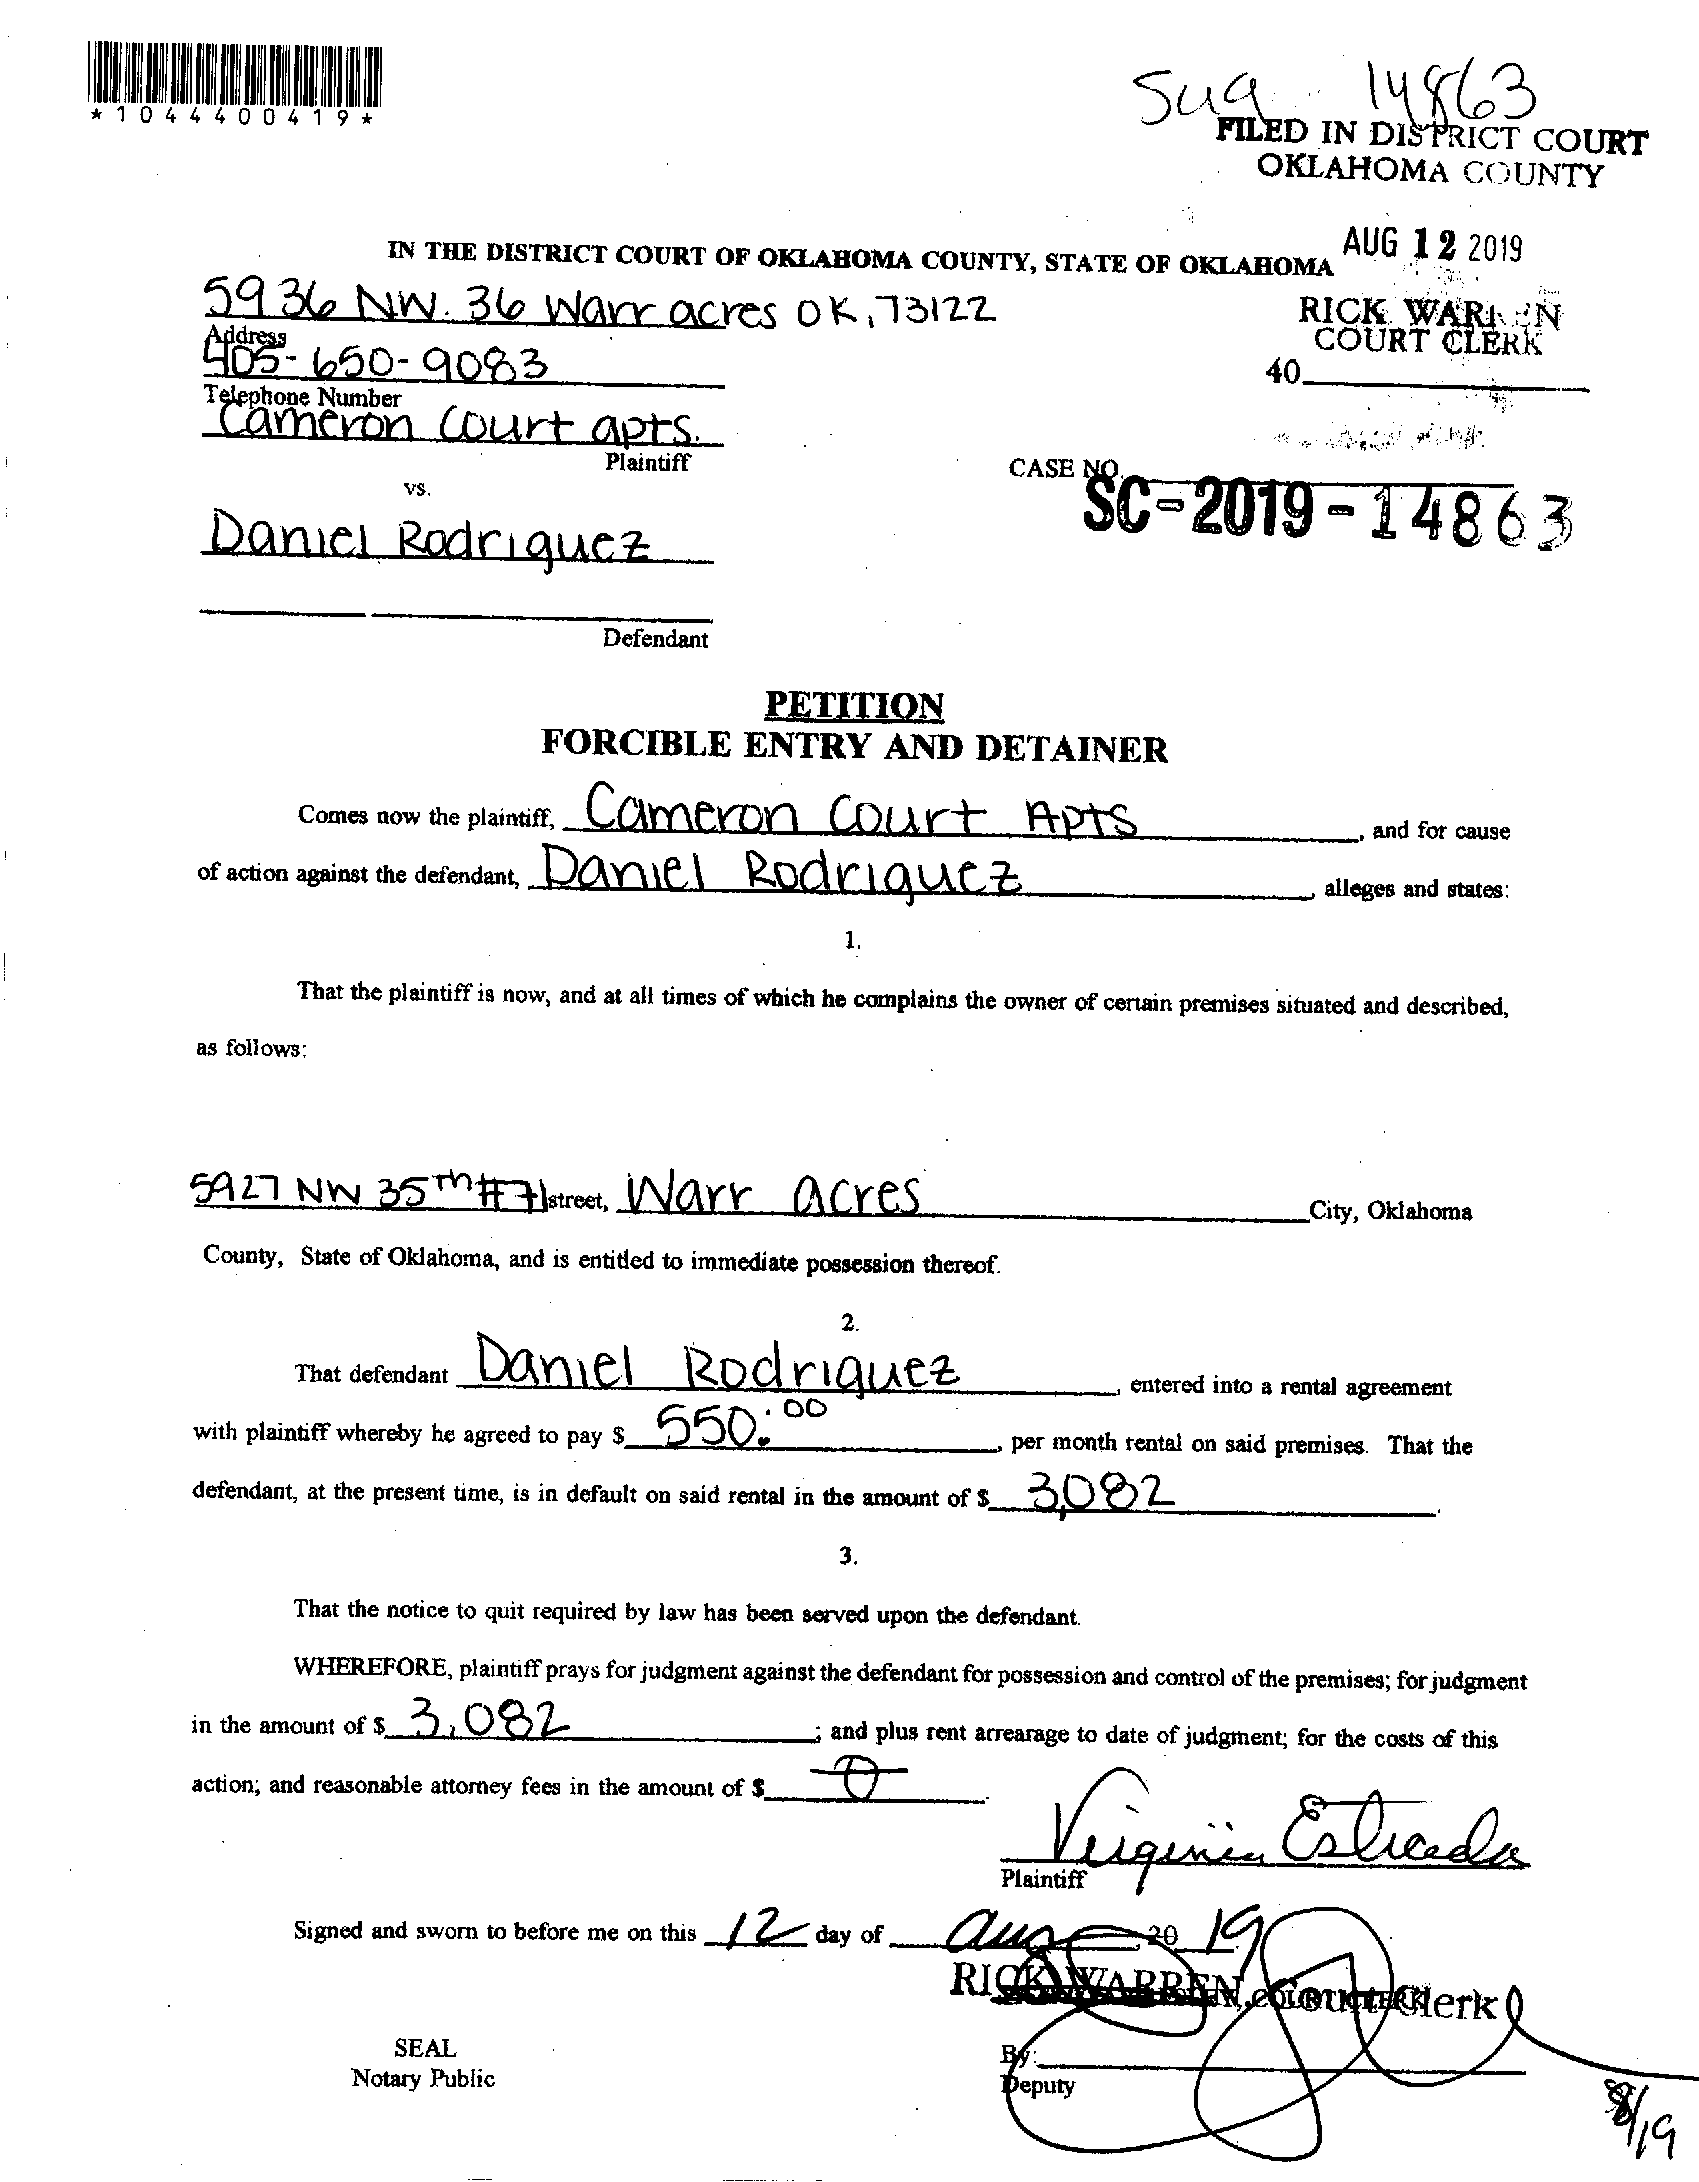 *1044400419*
Sug 14863
FILED IN DISTRICT COURT
OKLAHOMA COUNTY
AUG 12 2019
IN THE DISTRICT COURT OF OKLAHOMA COUNTY, STATE OF OKLAHOMA
5936 NW. 36 Warr acres OK, 73122
RICK WARREN
COURT CLERK
Address
405-650-9083
40
Telephone Number
Cameron Court apts.
Plaintiff
CASE NO.
vs.
SC-2019-14863
Daniel Rodriguez
Defendant
PETITION
FORCIBLE ENTRY AND DETAINER
Comes now the plaintiff, Cameron Court Apts, and for cause
of action against the defendant, Daniel Rodriguez, alleges and states:
1.
That the plaintiff is now, and at all times of which he complains the owner of certain premises situated and described,
as follows:
5927 NW 35th #71 street, Warr acres City, Oklahoma
County, State of Oklahoma, and is entitled to immediate possession thereof.
2.
That defendant Daniel Rodriguez, entered into a rental agreement
with plaintiff whereby he agreed to pay $ 550.00, per month rental on said premises. That the
defendant, at the present time, is in default on said rental in the amount of $ 3,082.
3.
That the notice to quit required by law has been served upon the defendant.
WHEREFORE, plaintiff prays for judgment against the defendant for possession and control of the premises; for judgment
in the amount of $ 3,082; and plus rent arrearage to date of judgment; for the costs of this
action; and reasonable attorney fees in the amount of $ 0.
Virginia Estrada
Plaintiff
Signed and sworn to before me on this 12 day of Aug, 20 19
RICK WARREN, Court Clerk
SEAL
Notary Public
By:
Deputy
8/19